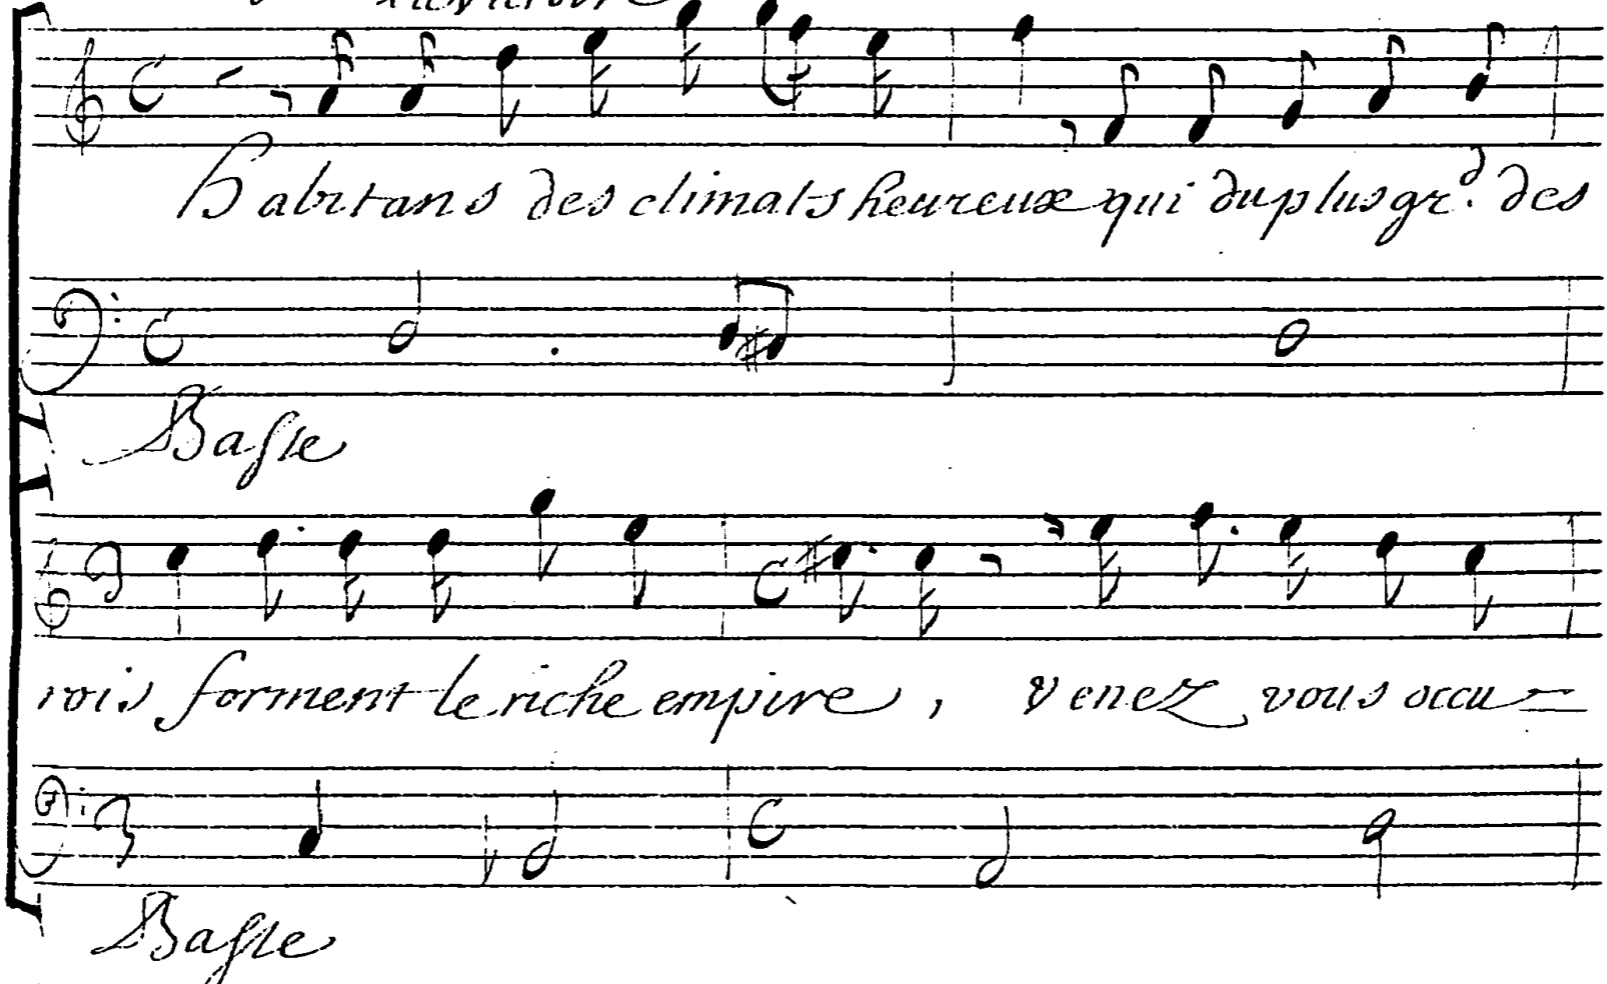 Habitans des climats heureux qui du plus gr.d des
Basse
rois forment le riche empire, venez vous occu=
Basse